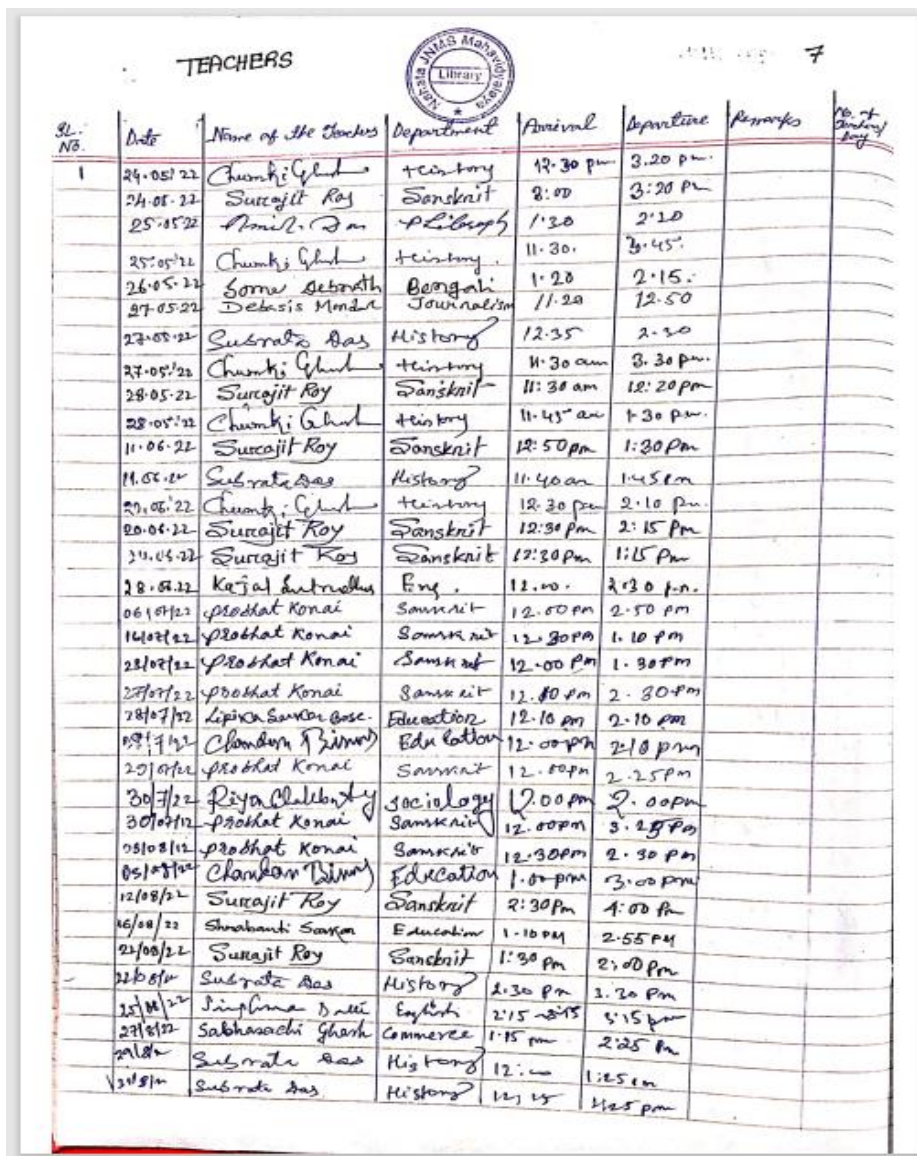 TEACHERS
Nahata JNMS Mahavidyalaya
Library
7
SL. No. Date Name of the Teachers Department Arrival Departure Remarks No. of
1 24.05.'22 Chumki Ghosh History 12.30 pm 3.20 pm.
24.05.22 Surajit Roy Sanskrit 2:00 3:20 Pm
25.05.22 Das 1.30 2.20
25.05.'22 Chumki Ghosh History. 11.30. 3.45.
26.05.22 Some Debnath Bengali 1.20 2.15.
27.05.22 Debasis Mondal Journalism 11.20 12.50
27.05.22 Subrata Das History 12.35 2.30
27.05.'22 Chumki Ghosh History 11.30 am 3.30 pm.
28.05.22 Surajit Roy Sanskrit 11:30 am 12:20pm
28.05.'22 Chumki Ghosh History 11.45 am 1.30 pm.
11.06.22 Surajit Roy Sanskrit 12:50pm 1:30pm
Subrata Das History 11.40am
Chumki Ghosh History 12.30 pm 2.10 pm.
20.06.22 Surajit Roy Sanskrit 12:30 Pm 2:15 Pm
Surajit Roy Sanskrit 12:30Pm 1:15 Pm
28.06.22 Kajal Eng. 12.00. 2.30 p.m.
06/07/22 Probhat Konai Sanskrit 12.00pm 2.50 pm
16/07/22 Probhat Konai Sanskrit 12.30pm 1.10 pm
Probhat Konai Sanskrit 12.00 Pm 1.30pm
27/07/22 Probhat Konai Sanskrit 2.30pm
28/07/22 Lipika Sarkar Bose. Education 12.10 pm 2.10 pm
Education 12.00 pm 2.10 pm
Probhat Konai Sanskrit 12.00pm 2.25pm
30/7/22 Riya Sociology 12.00pm 2.00pm
30/07/12 Probhat Konai Sanskrit 12.00pm 3.25 Pm
Probhat Konai Sanskrit 12.30pm 2.30 pm
Education 1.00 pm 3.00 pm
12/08/22 Surajit Roy Sanskrit 2:30Pm 4:00 Pm
16/08/22 Shrabanti Sarkar Education 1.10 PM 2.55 PM
Surajit Roy Sanskrit 1:30 Pm 2:00 Pm
Subrata Das History 2.30 Pm 3.30 Pm
English 3:15 pm
27/8/22 Sabhasachi Ghosh Commerce 1.15 pm 2:25 Pm
Subrata Das History 12:00
Subrata Das History